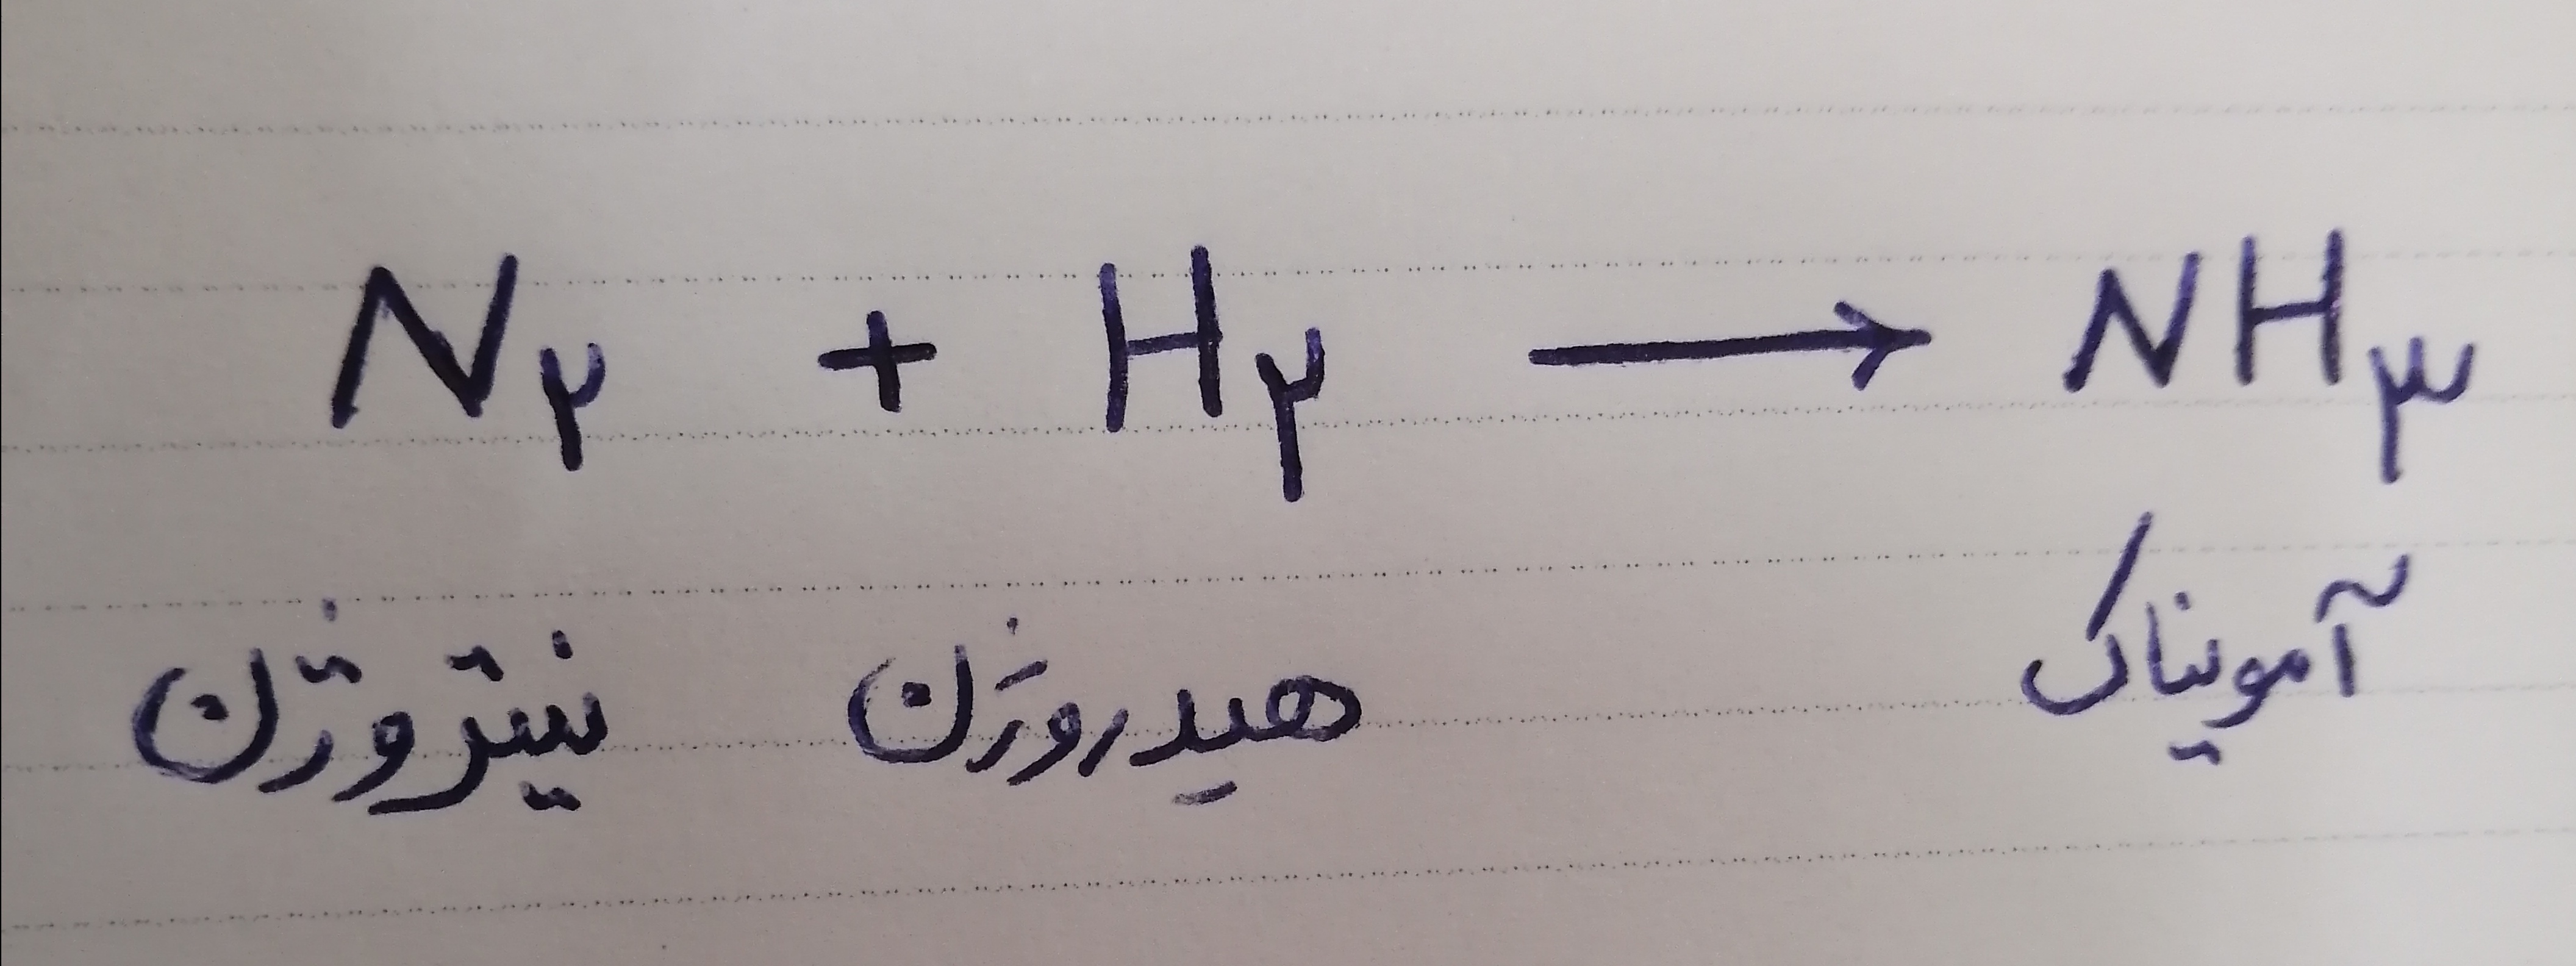 N۲ + H۲ → NH۳
نیتروژن هیدروژن آمویناک